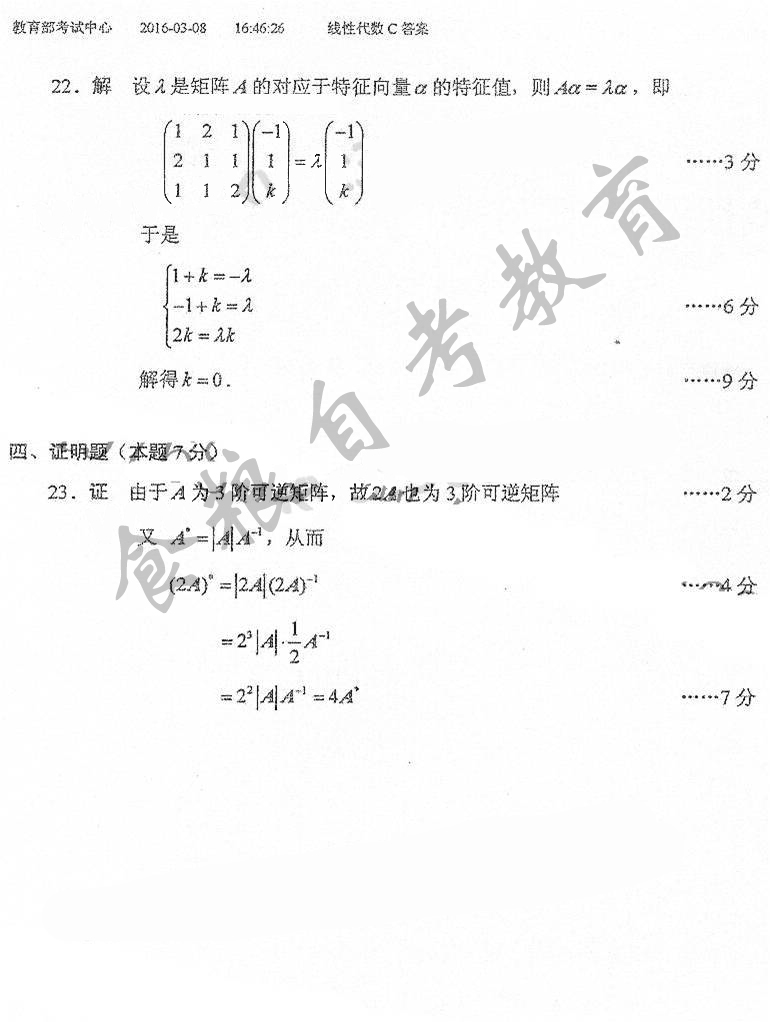 教育部考试中心 2016-03-08 16:46:26 线性代数 C 答案
22．解 设 λ 是矩阵 A 的对应于特征向量 α 的特征值，则 Aα = λα，即
(1 2 1)(-1) (-1)
(2 1 1)( 1) = λ( 1) ……3 分
(1 1 2)( k) ( k)
于是
{1+k=-λ
{-1+k=λ ……6 分
{2k=λk
解得 k=0． ……9 分
四、证明题（本题 7 分）
23．证 由于 A 为 3 阶可逆矩阵，故 2A 也为 3 阶可逆矩阵 ……2 分
又 A* = |A|A⁻¹，从而
(2A)* = |2A|(2A)⁻¹ ……4 分
= 2³|A|·1/2 A⁻¹
= 2²|A|A⁻¹ = 4A* ……7 分
食粮自考教育